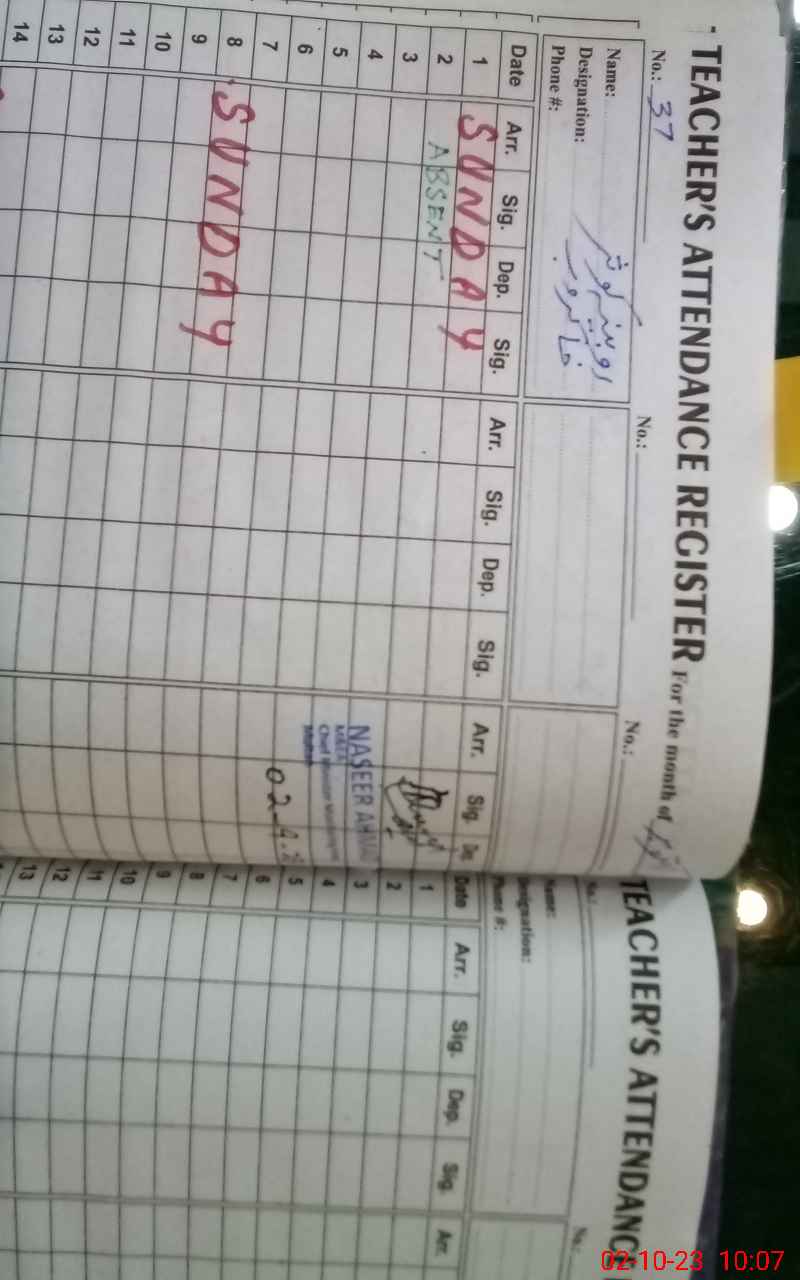 TEACHER'S ATTENDANCE REGISTER For the month of
No.: 37 No.: No.:
Name: روبینہ کوثر
Designation:
Phone #:
Date Arr. Sig. Dep. Sig. Arr. Sig. Dep. Sig. Arr. Sig. Dep.
1 SUNDAY
2 ABSENT
3
4
5
6
7
8 SUNDAY
9
10
11
12
13
14
NASEER AHMAD
MEA
02-4.2
TEACHER'S ATTENDANCE
No.: No.:
Name:
Designation:
Phone #:
Date Arr. Sig. Dep. Sig. Arr.
1
2
3
4
5
6
7
8
9
10
11
12
13
02-10-23 10:07